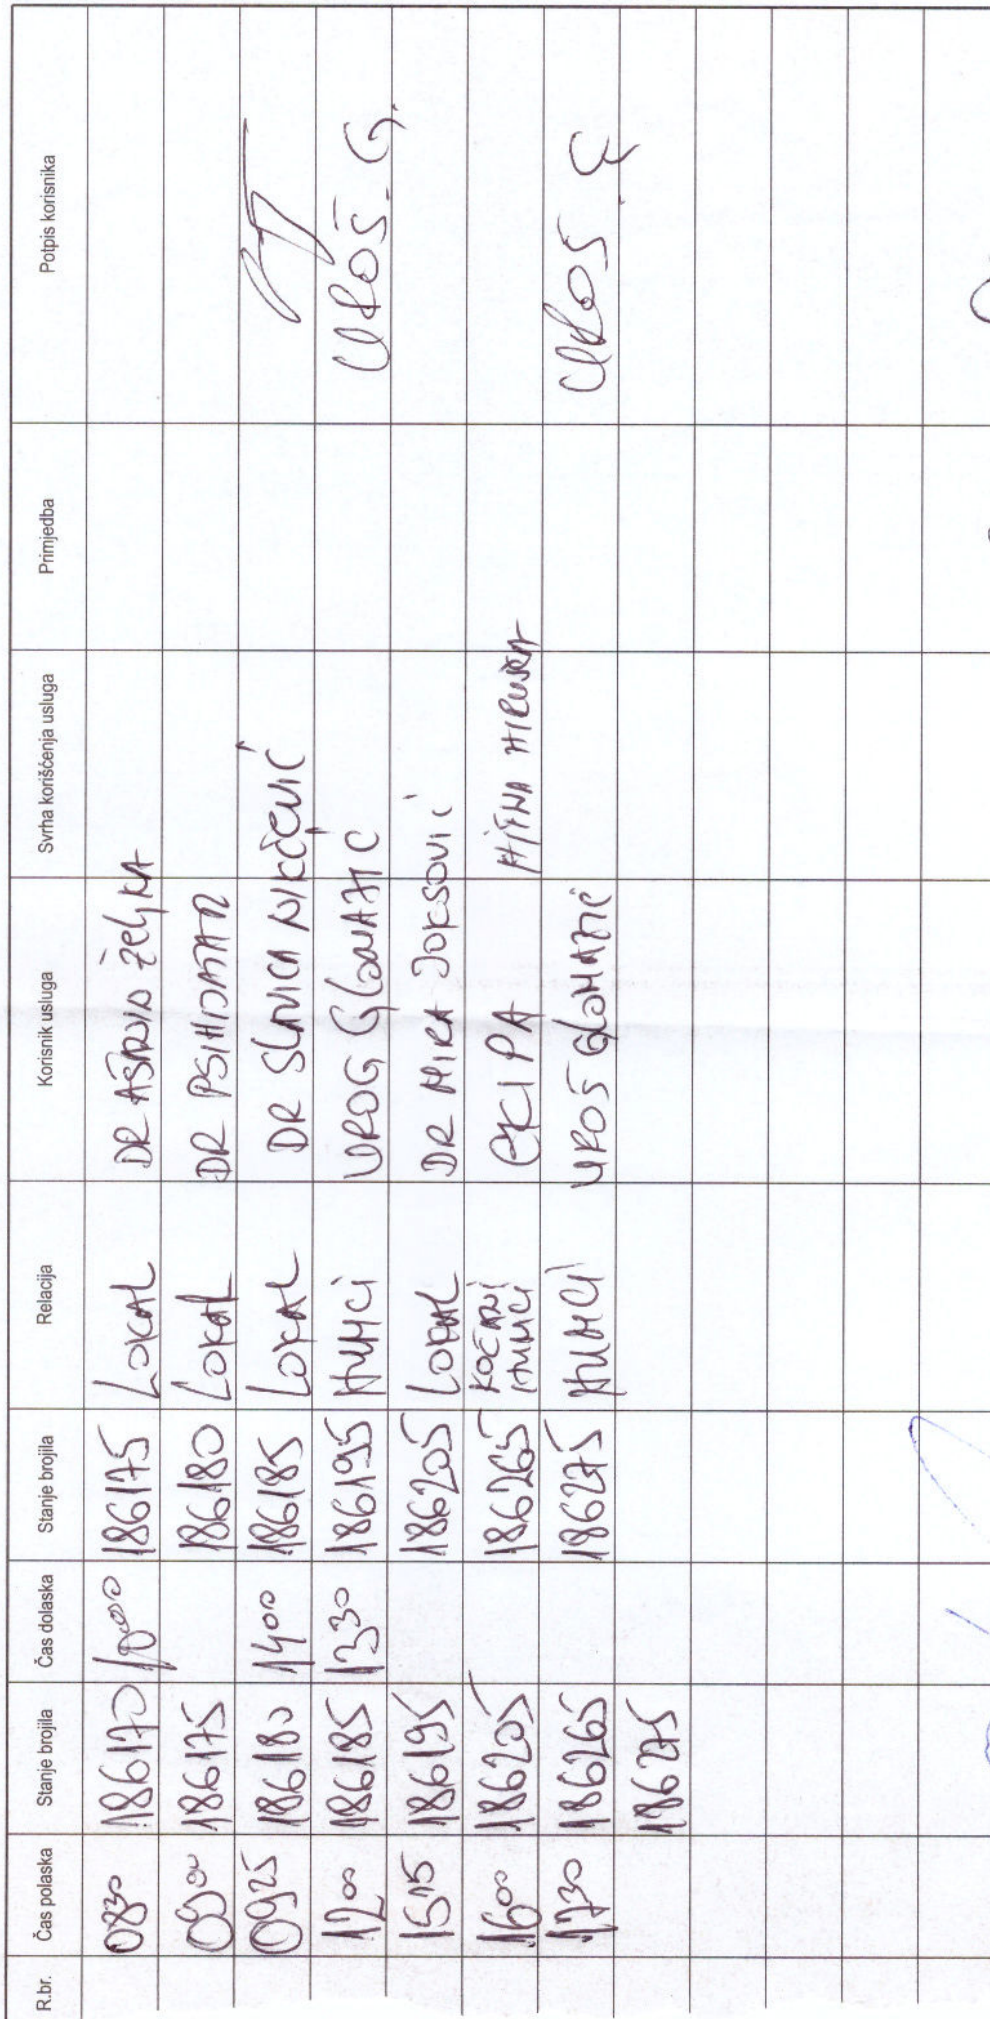 R.br. Čas polaska Stanje brojila Čas dolaska Stanje brojila Relacija Korisnik usluga Svrha koriščenja usluga Primjedba Potpis korisnika
0830 186170 1000 186175 LOKAL DR AŠANIN ŽELJKA
0900 186175 186180 LOKAL DR PSIHIJATAR
0925 186180 1400 186185 LOKAL DR SLAVICA NIKČEVIĆ
1200 186185 1330 186195 HUMCI UROG GLOMAZIĆ UROŠ. G.
1515 186195 186205 LOKAL DR MIRA JOKSOVIĆ
1600 186205 186265 KOČANI HUMCI EKIPA
1730 186265 186275 HUMCI UROŠ GLOMAZIĆ UROŠ G
186275